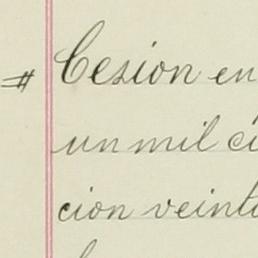 # Cesion en
un mil ci
cion veint